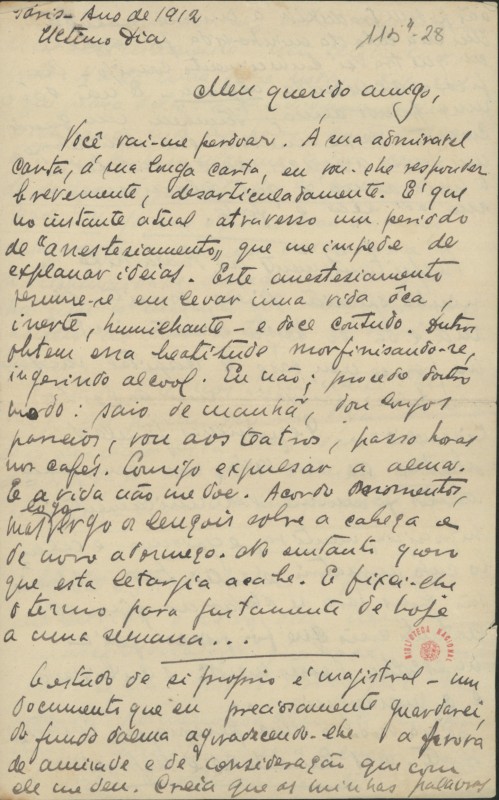 Paris - Ano de 1912
Ultimo Dia
115⁴-28
Meu querido amigo,
Você vai-me perdoar. Á sua admiravel
carta, á sua longa carta, eu vou-lhe responder
brevemente, desarticuladamente. É que
no instante atual atravesso um periodo
de "anestesiamento" que me impede de
explanar ideias. Este anestesiamento
resume-se em levar uma vida ôca,
inerte, humilhante - e doce contudo. Outros
obtem essa beatitude morfinisando-se,
ingerindo alcool. Eu não; procedo doutro
modo: saio de manhã, dou longos
passeios, vou aos teatros, passo horas
nos cafés. Consigo expulsar a alma.
E a vida não me doe. Acordo momentos,
mas logo ergo os lençois sobre a cabeça e
de novo adormeço. No emtanto quero
que esta letargia acabe. E fixei-lhe
o termo para justamente de hoje
a uma semana...
BIBLIOTECA NACIONAL
O estudo de si proprio é magistral - um
documento que eu preciosamente guardarei,
do fundo dalma agradecendo-lhe a prova
de amizade e de consideração que com
ele me deu. Creia que as minhas palavras